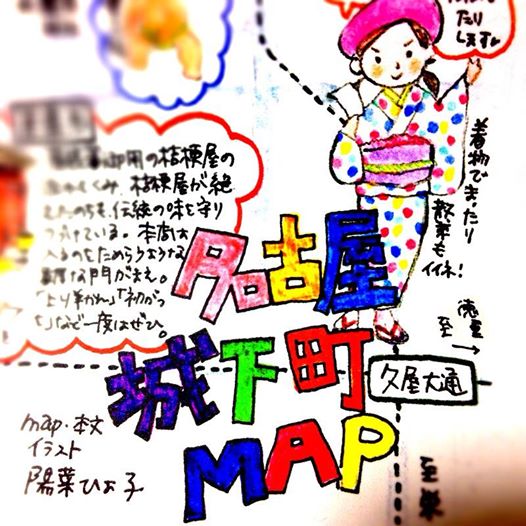 たり
します。
御用の桔梗屋の
桔梗屋が絶
えたのちも、伝統の味を守り
つづけている。本店は
入るのをためらうような
な門がまえ。
「上り羊かん」「初がつ
を」など一度はぜひ。
着物でまったり
散策も
イイネ!
名古屋
城下町
MAP
徳重
至→
久屋大通
map・本文
イラスト
陽菜ひよ子
至栄